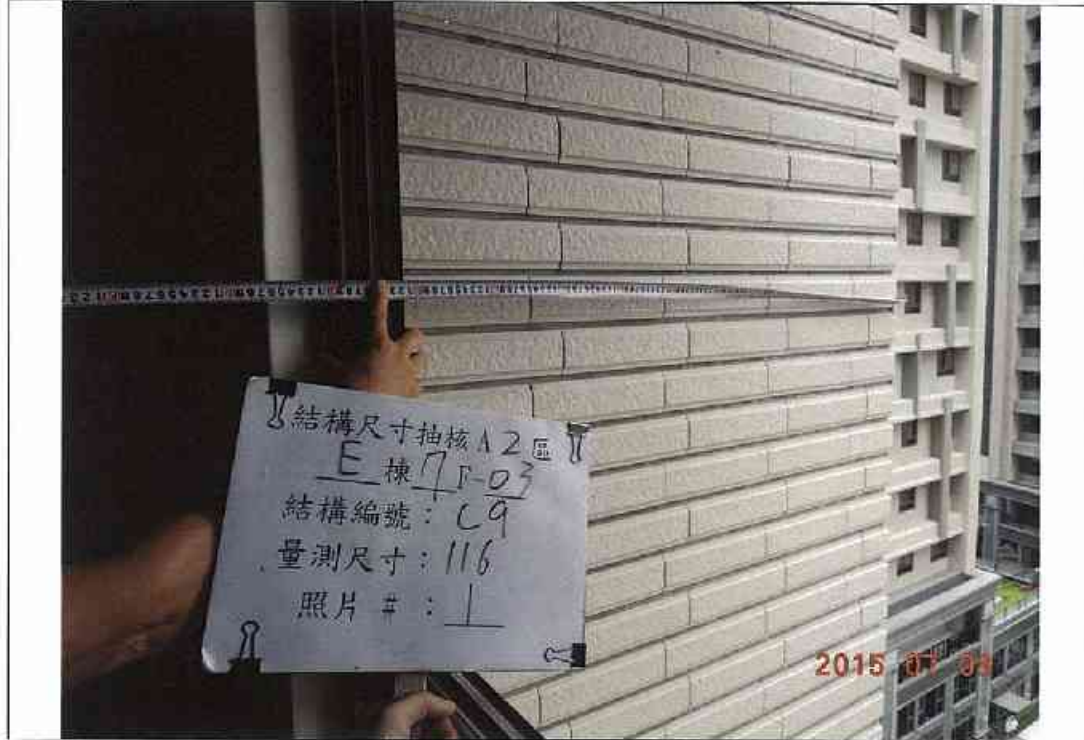 結構尺寸抽核A2區
E棟7F-03
結構編號：C9
量測尺寸：116
照片#：1
2015